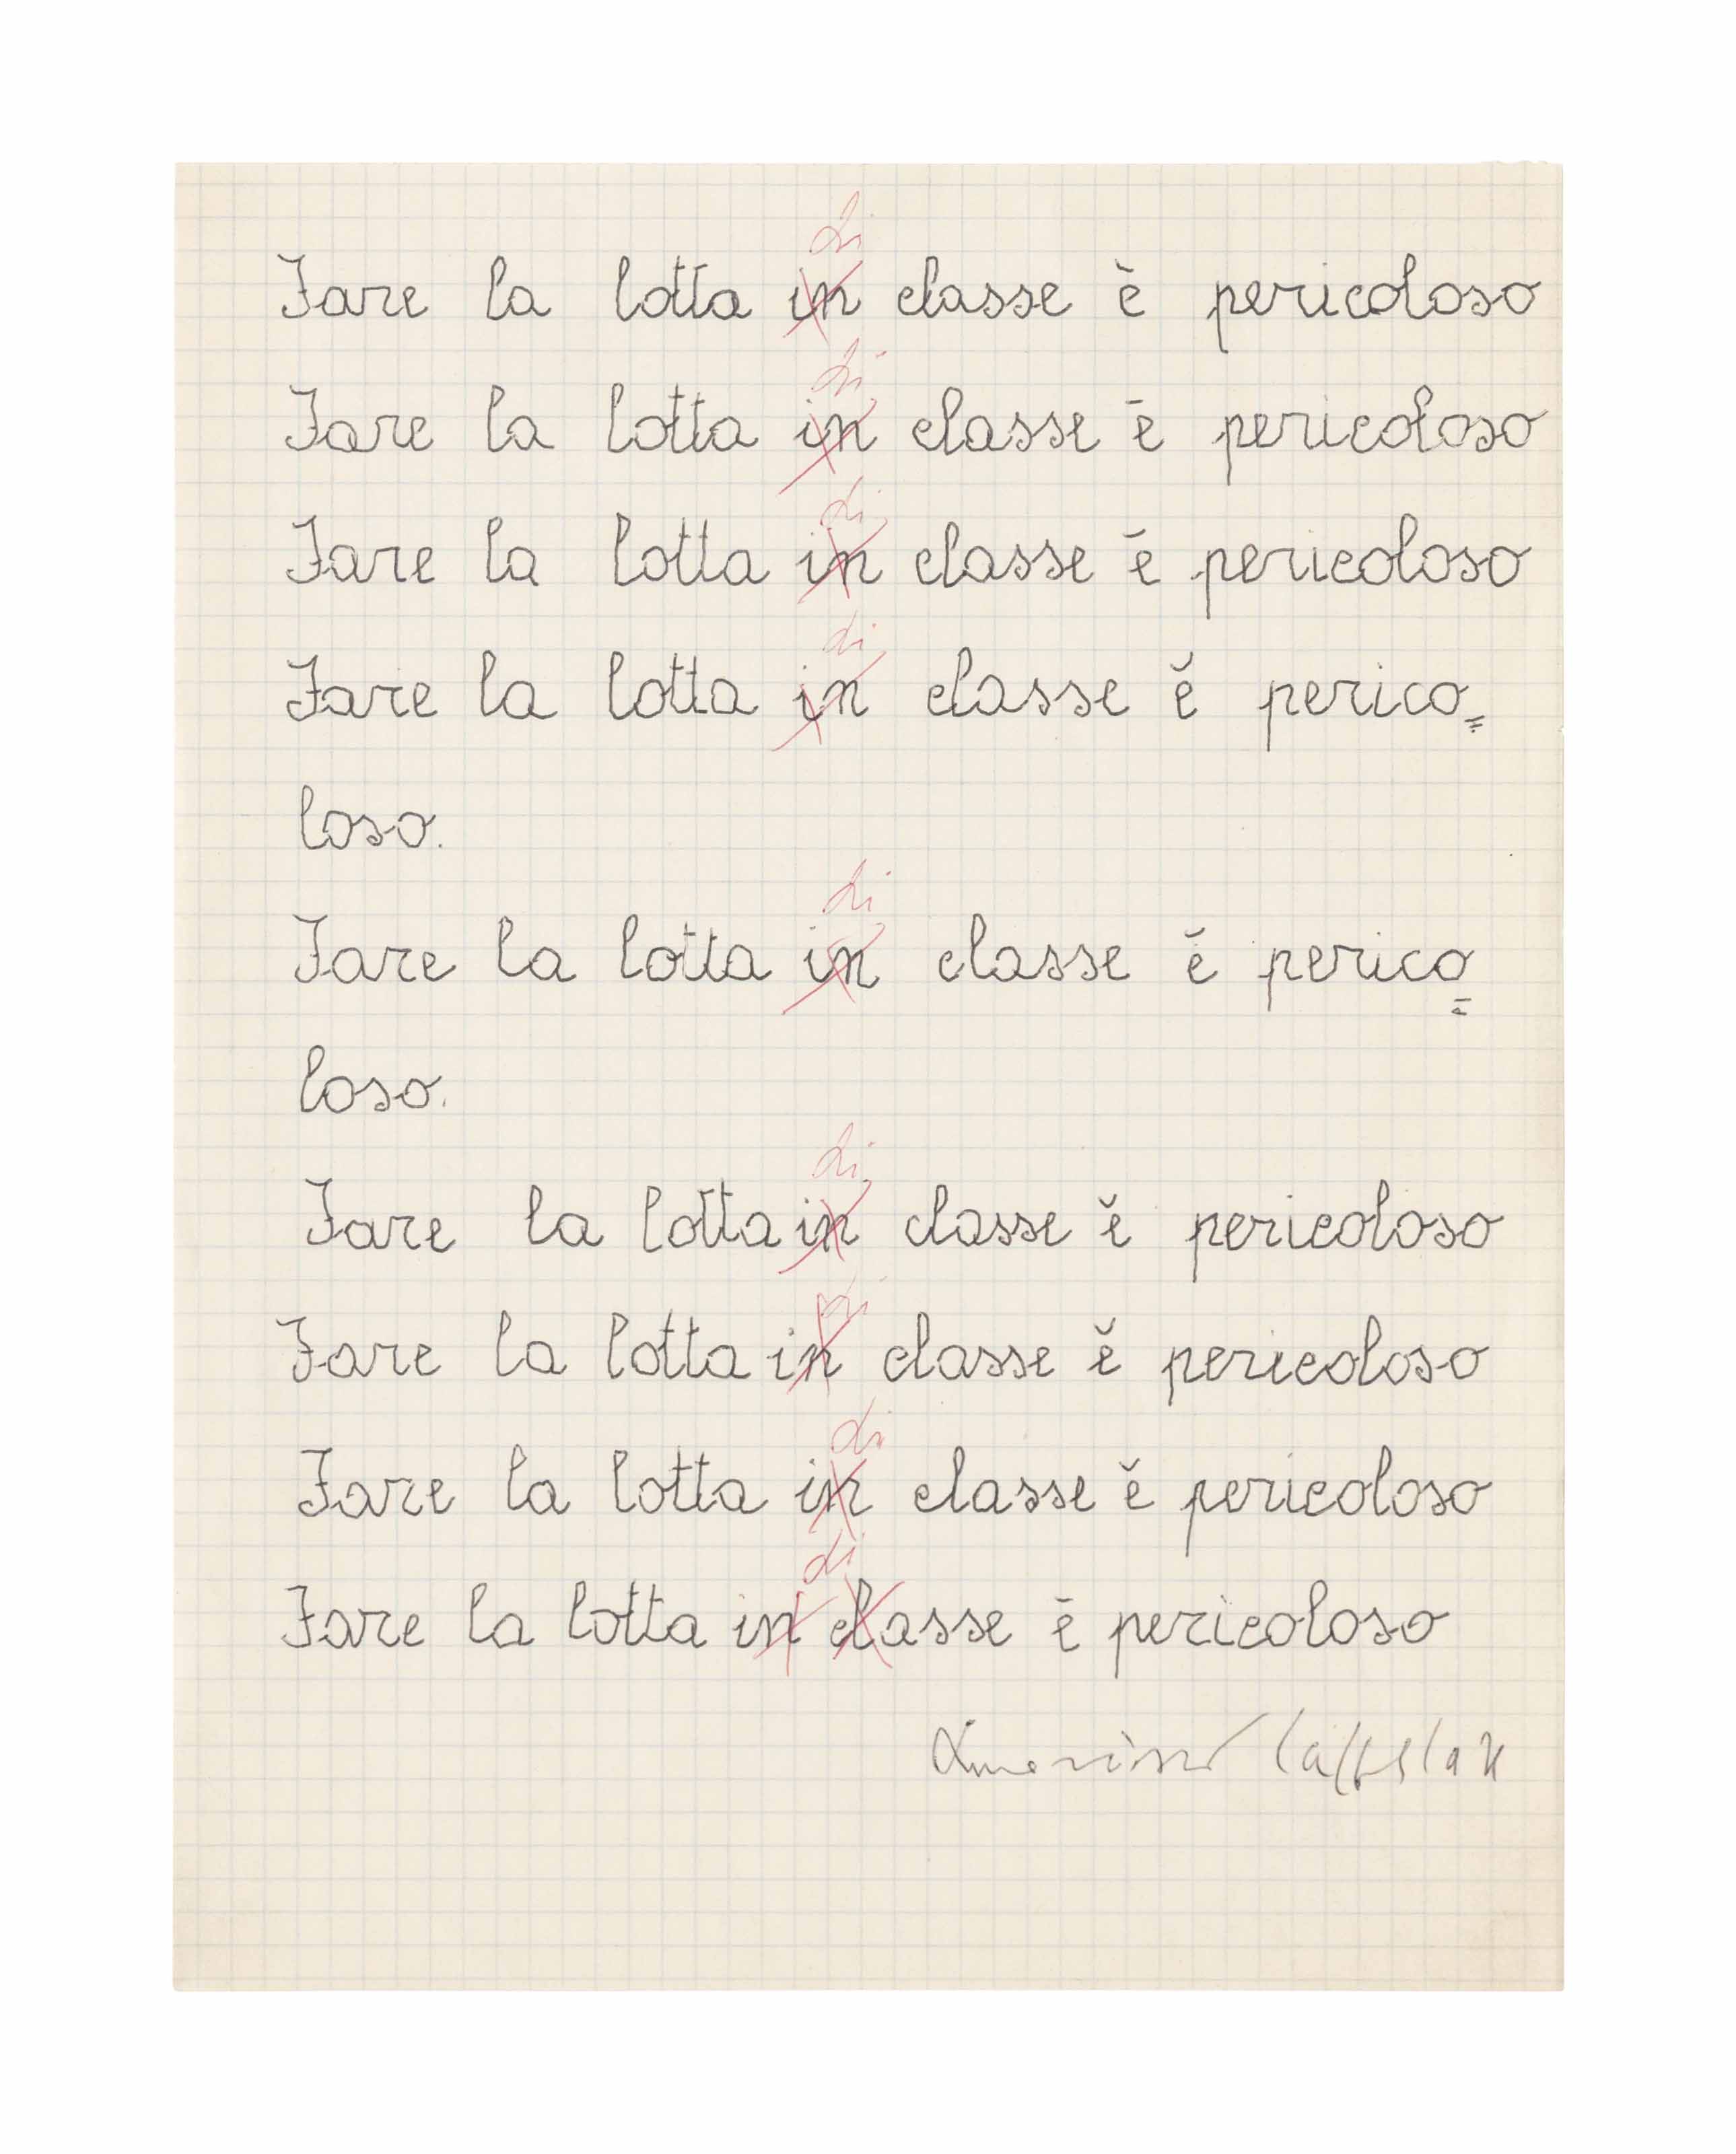 di
Fare la lotta in classe è pericoloso
di
Fare la lotta in classe è pericoloso
di
Fare la lotta in classe è pericoloso
di
Fare la lotta in classe è perico=
loso.
di
Fare la lotta in classe è perico
=
loso.
di
Fare la lotta in classe è pericoloso
di
Fare la lotta in classe è pericoloso
di
Fare la lotta in classe è pericoloso
di
Fare la lotta in classe è pericoloso